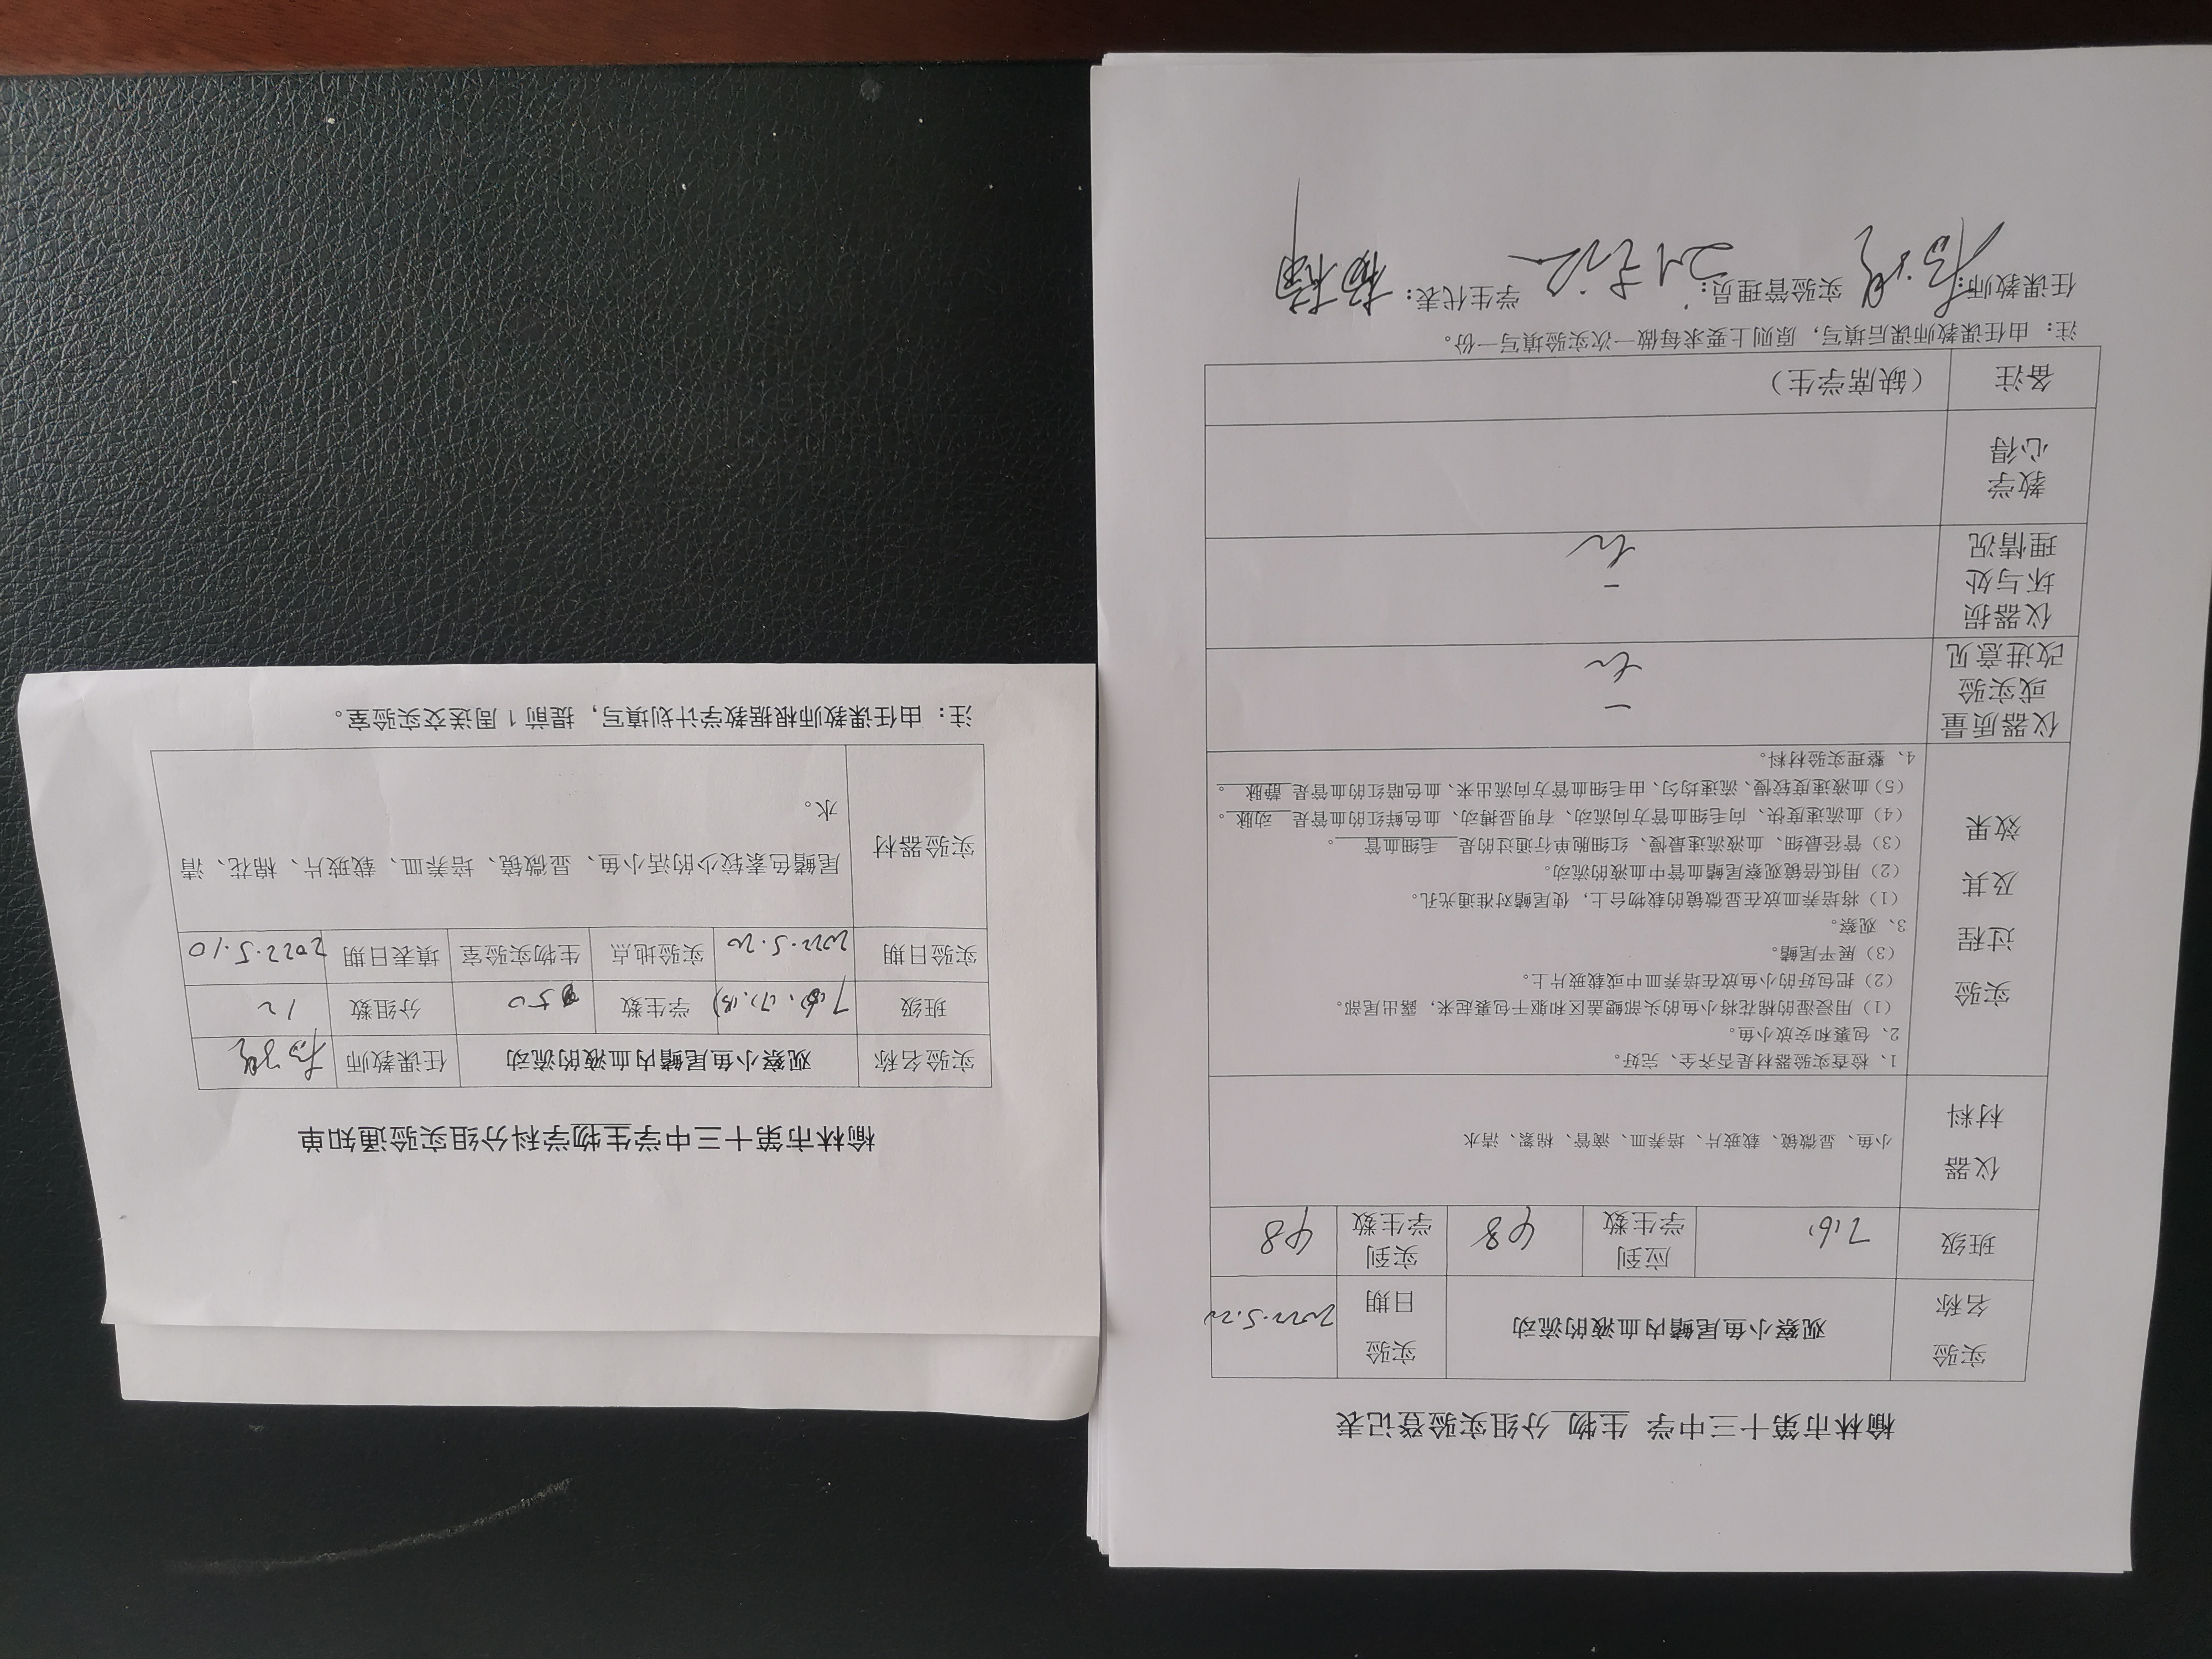 榆林市第十三中学 生物 分组实验登记表
实验名称 观察小鱼尾鳍内血液的流动 实验日期 2022.5.20
班级 7(6) 应到学生数 48 实到学生数 48
仪器材料 小鱼、显微镜、载玻片、培养皿、滴管、棉絮、清水
实验过程及其效果
1、检查实验器材是否齐全、完好。
2、包裹和安放小鱼。
(1) 用浸湿的棉花将小鱼的头部鳃盖区和躯干包裹起来，露出尾部。
(2) 把包好的小鱼放在培养皿中或载玻片上。
(3) 展平尾鳍。
3、观察。
(1) 将培养皿放在显微镜的载物台上，使尾鳍对准通光孔。
(2) 用低倍镜观察尾鳍血管中血液的流动。
(3) 管径最细、血液流速最慢、红细胞单行通过的是 毛细血管 。
(4) 血流速度快、向毛细血管方向流动、有明显搏动、血色鲜红的血管是 动脉 。
(5) 血液速度较慢、流速均匀、由毛细血管方向流出来、血色暗红的血管是 静脉 。
4、整理实验材料。
仪器质量或实验改进意见
仪器损坏与处理情况
教学心得
备注 （缺席学生）
注：由任课教师课后填写，原则上要求每做一次实验填写一份。
任课教师： 实验管理员： 学生代表：
榆林市第十三中学生物学科分组实验通知单
实验名称 观察小鱼尾鳍内血液的流动 任课教师
班级 学生数 50 分组数 12
实验日期 2022.5.20 实验地点 生物实验室 填表日期 2022.5.10
实验器材 尾鳍色素较少的活小鱼、显微镜、培养皿、载玻片、棉花、清
水。
注：由任课教师根据教学计划填写，提前1周送交实验室。